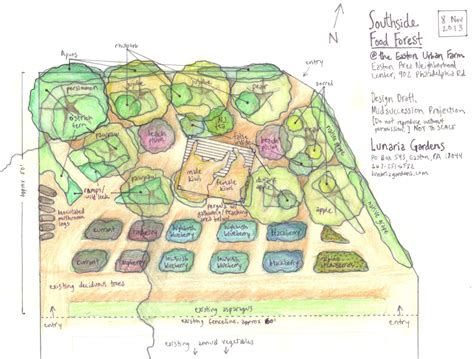 Southside
Food Forest
8 Nov
2013
@ the Easton Urban Farm
Easton Area Neighborhood
Center, 902 Philadelphia Rd
Design Draft,
Midsuccession Projection
[Do not reproduce without
permission] NOT TO SCALE
Lunaria Gardens
PO Box 543, Easton, PA 18044
lunariagardens.com
entry
Apios
rhubarb
sorrel
persimmon
ostrich
fern
pawpaw
pear
NJ
tea
beach
plum
beach
plum
asian
pear
male
kiwi
female
kiwi
pergola w/
gathering/teaching
area below
dessert
apple
apple
pawpaw
ramps/
wild leek
inoculated
mushroom
logs
hardy kiwi
currant
raspberry
highbush
blueberry
highbush
blueberry
blackberry
currant
raspberry
highbush
blueberry
highbush
blueberry
blackberry
existing deciduous trees
existing asparagus
entry
existing fenceline, approx 80'
entry
existing annual vegetables